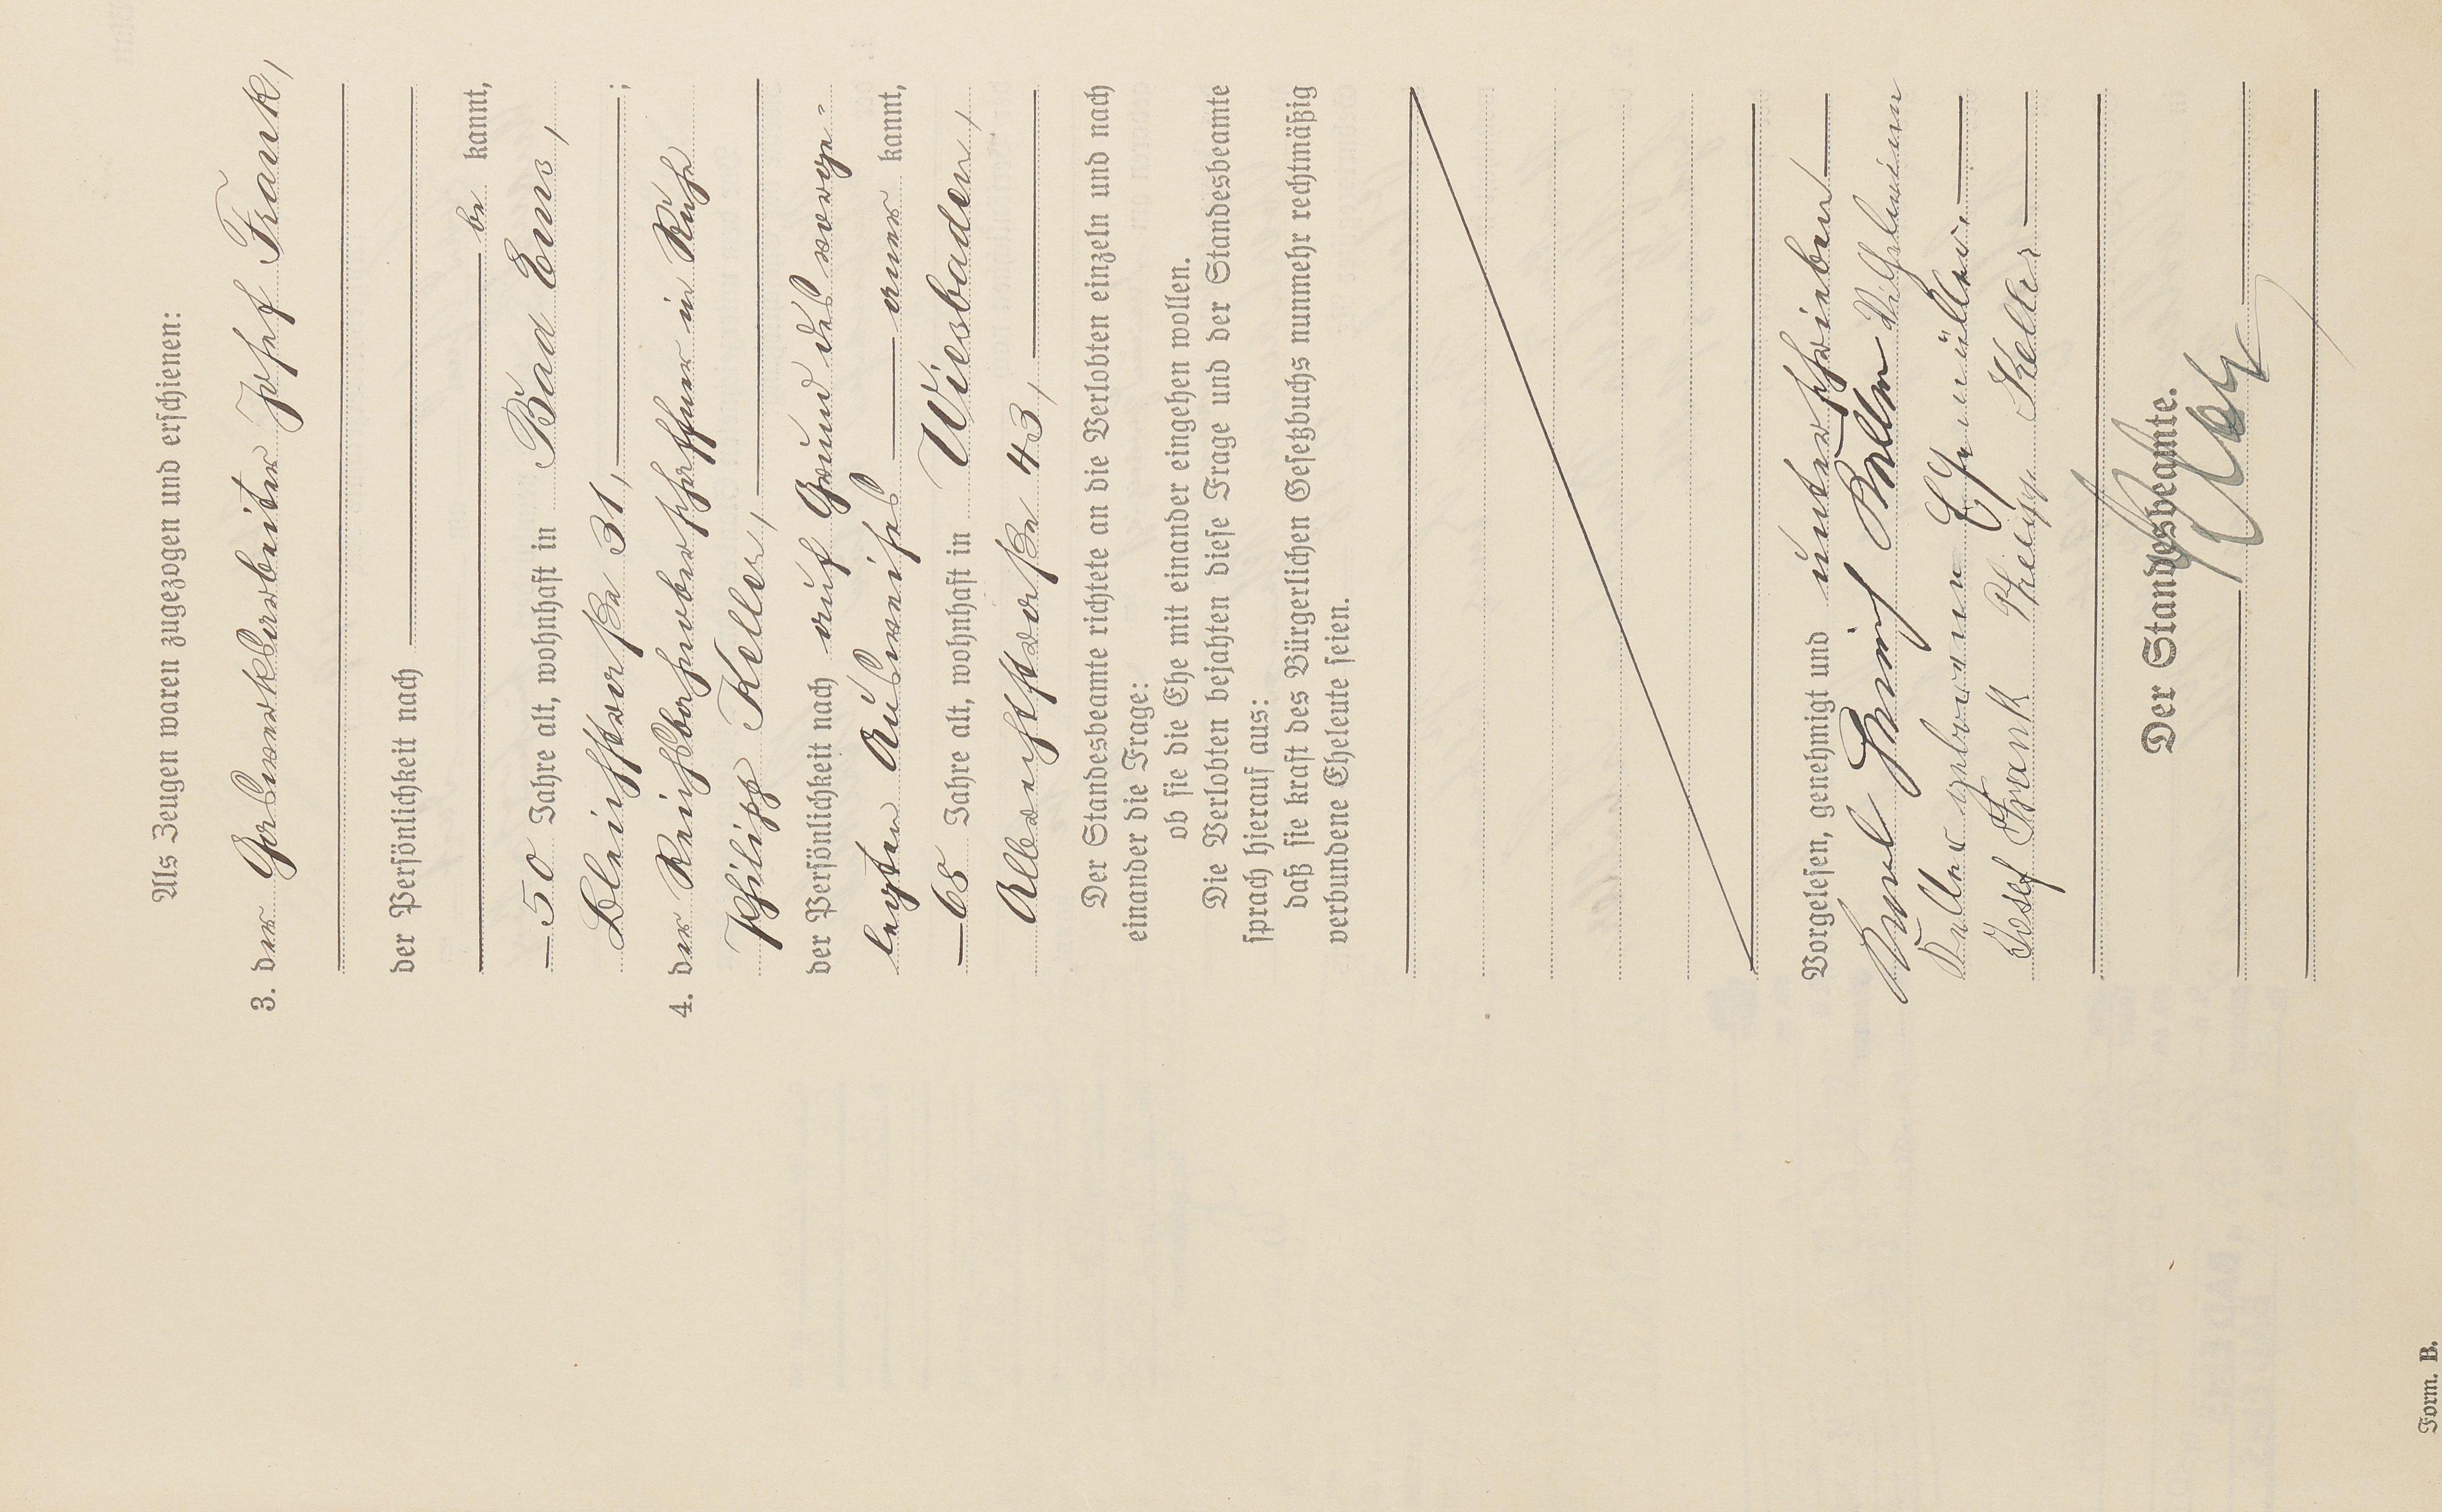 Als Zeugen waren zugezogen und erschienen:
3. der Gaswerksarbeiter Josef Frank,
der Persönlichkeit nach
be kannt,
50 Jahre alt, wohnhaft in Bad Ems,
Bleichstraße 31, ;
4. der Reichsbahnoberschaffner in Ruhe
Philipp Keller,
der Persönlichkeit nach auf Grund des vorge-
legten Ausweises aner kannt,
68 Jahre alt, wohnhaft in Wiesbaden,
Albrechtstraße 43,
Der Standesbeamte richtete an die Verlobten einzeln und nach
einander die Frage:
ob sie die Ehe mit einander eingehen wollen.
Die Verlobten bejahten diese Frage und der Standesbeamte
sprach hierauf aus:
daß sie kraft des Bürgerlichen Gesetzbuchs nunmehr rechtmäßig
verbundene Eheleute seien.
Vorgelesen, genehmigt und unterschrieben
Karl Heinrich Wilhelmine
geborene
Josef Frank Philipp Keller
Der Standesbeamte.
Form. B.